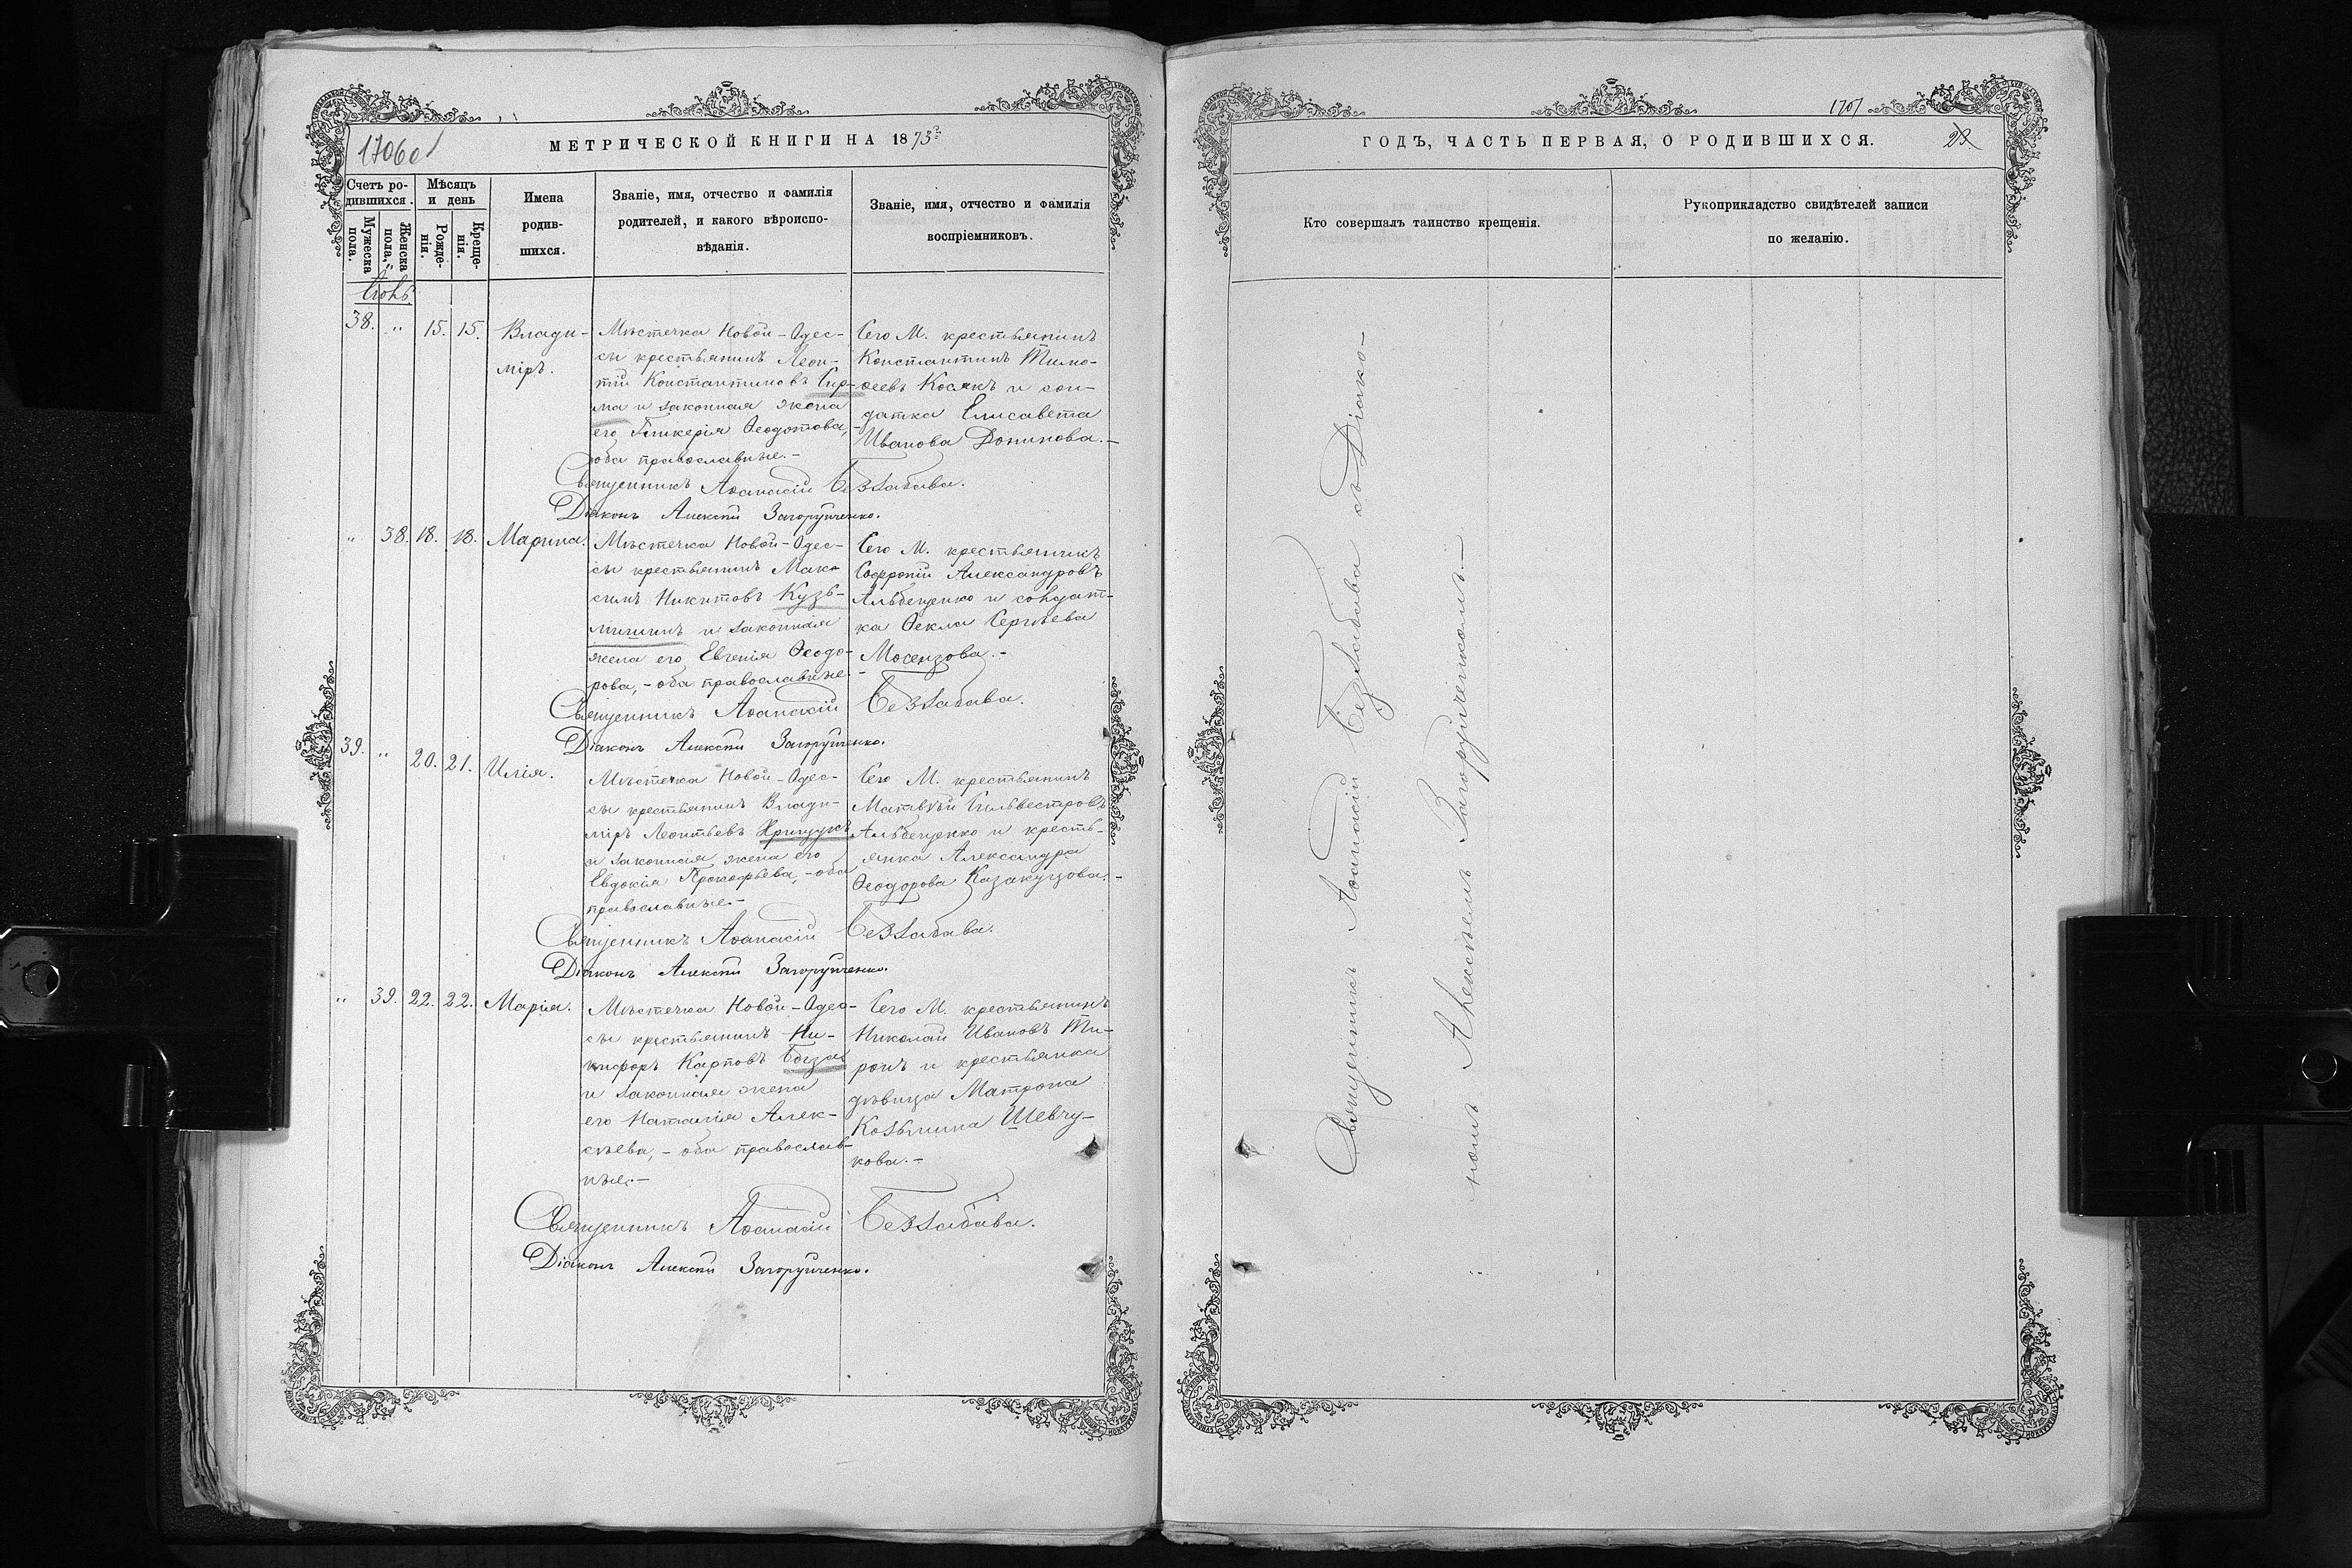 1706об
МЕТРИЧЕСКОЙ КНИГИ НА 1873й
Счетъ ро-
дившихся.
Мужеска
пола.
Женска
пола.
Мѣсяцъ
и день
Рожде-
нія.
Креще-
нія.
Имена
родив-
шихся.
Званіе, имя, отчество и фамилія
родителей, и какого вѣроиспо-
вѣданія.
Званіе, имя, отчество и фамилія
воспріемниковъ.
Іюнь
38. " 15. 15. Влади-
міръ.
Мѣстечка Новой-Одес-
сы крестьянинъ Леон-
тій Константиновъ
и законная жена
его Гликерія Ѳеодотова,
оба православные.-
Сего М. крестьянинъ
Константинъ Тимо-
ѳеевъ Косякъ и сол-
датка Елисавета
Иванова Доникова.-
Священникъ Аѳанасій Беззабава.
Діаконъ Алексѣй Загоруйченко.
" 38. 18. 18. Марина.
Мѣстечка Новой-Одес-
сы крестьянинъ Мак-
симъ Никитовъ Кузь-
мишинъ и законная
жена его Евгенія Ѳеодо-
рова,- оба православные.
Сего М. крестьянинъ
Софроній Александровъ
Альбещенко и солдат-
ка Ѳекла Сергѣева
Мосенцова.-
Священникъ Аѳанасій Беззабава.
Діаконъ Алексѣй Загоруйченко.
39. " 20. 21. Илія.
Мѣстечка Новой-Одес-
сы крестьянинъ Влади-
міръ Леонтьевъ
и законная жена его
Евдокія Прокофьева,- оба
православные.-
Сего М. крестьянинъ
Матвѣй Сильвестровъ
Альбещенко и кресть-
янка Александра
Ѳеодорова Казакуцова.-
Священникъ Аѳанасій Беззабава.
Діаконъ Алексѣй Загоруйченко.
" 39. 22. 22. Марія.
Мѣстечка Новой-Одес-
сы крестьянинъ Ни-
кифоръ Карповъ
и законная жена
его Наталія Алек-
сѣева,- оба православ-
ные.-
Сего М. крестьянинъ
Николай Ивановъ Ти-
ронъ и крестьянка
дѣвица Матрона
Козьмина Шевчу-
кова.-
Священникъ Аѳанасій Беззабава.
Діаконъ Алексѣй Загоруйченко.
1707
23
ГОДЪ, ЧАСТЬ ПЕРВАЯ, О РОДИВШИХСЯ.
Кто совершалъ таинство крещенія.
Рукоприкладство свидѣтелей записи
по желанію.
Священникъ Аѳанасій Беззабава съ Діако-
номъ Алексѣемъ Загоруйченкомъ.-